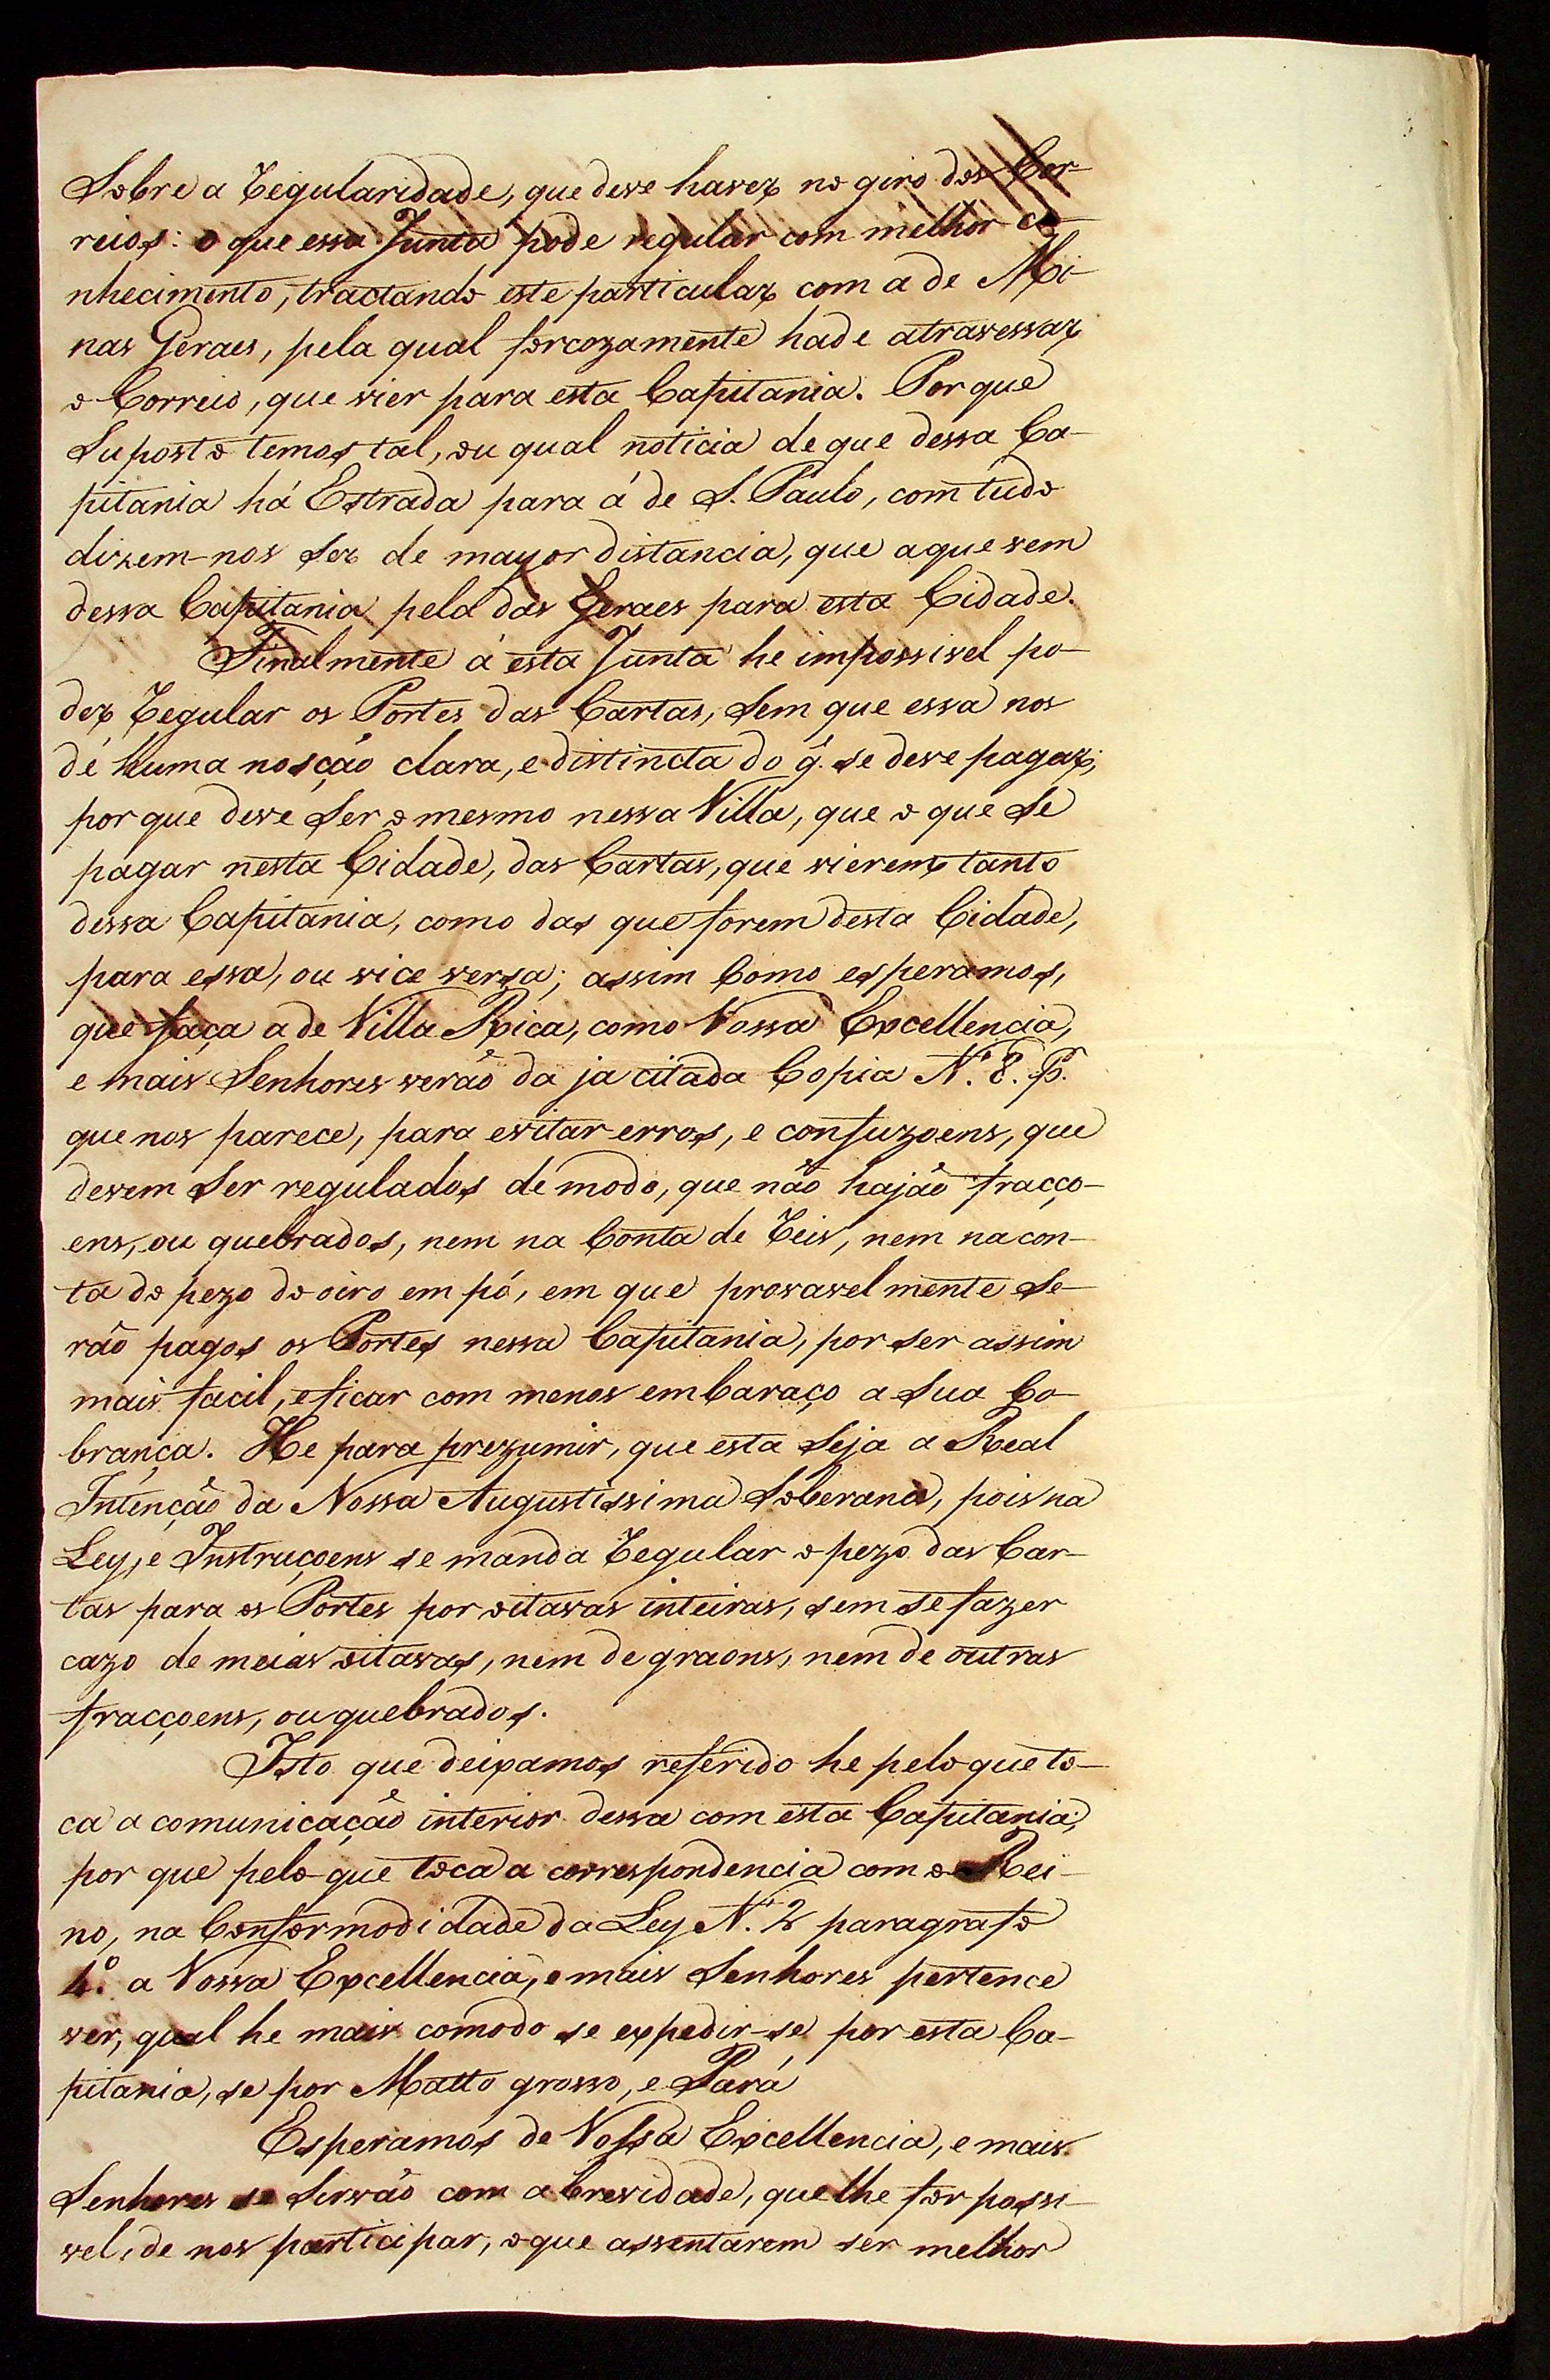 Sobre a regularidade, que deve haver no giro dos Cor-
reios: o que essa Junta pode regular com melhor co-
nhecimento, tractando este particular com a de Mi-
nas Geraes, pela qual forcozamente hade atravessar
o Correio, que vier para esta Capitania. Por que
Suposto temos tal, ou qual noticia de que dessa Ca-
pitania há Estrada para á de S. Paulo, com tudo
dizem-nos ser de mayor distancia, que a que vem
dessa Capitania pela das Geraes para esta Cidade.
Finalmente á esta Junta he impossivel po-
der regular os Portes das Cartas, sem que essa nos
dê huma nosção clara, e distincta do q̃ se deve pagar;
por que deve ser o mesmo nessa Villa, que o que se
pagar nesta Cidade, das Cartas, que vierem tanto
dessa Capitania, como das que forem desta Cidade,
para essa, ou vice versa; assim como esperamos,
que faça a de Villa Rica, como Vossa Excellencia,
e mais Senhores verão da ja citada Copia N.º 8. P.
que nos parece, para evitar erros, e confuzoens, que
devem ser regulados de modo, que não hajão fracço-
ens, ou quebrados, nem na Conta de reis, nem na con-
ta do pezo do oiro em pó, em que provavelmente se-
rão pagos os Portes nessa Capitania, por ser assim
mais facil, e ficar com menos embaraço a sua Co-
brança. He para prezumir, que esta seja a Real
Intenção da Nossa Augustissima Soberana, pois na
Ley, e Instrucçoens se manda regular o pezo das Car-
tas para os Portes por oitavas inteiras, sem se fazer
cazo de meias oitavas, nem de graons, nem de outras
fracçoens, ou quebrados.
Isto que deixamos referido he pelo que to-
ca a comunicação interior dessa com esta Capitania;
por que pelo que toca a correspondencia com o Rei-
no, na Conformodidade da Ley N.º 2 paragrafo
4.º a Vossa Excellencia, e mais Senhores pertence
ver, qual he mais comodo se expedir-se por esta Ca-
pitania, se por Matto grosso, e Pará
Esperamos de Vossa Excellencia, e mais
Senhores se sirvão com a brevidade, que lhe for possi-
vel, de nos participar, o que assentarem ser melhor